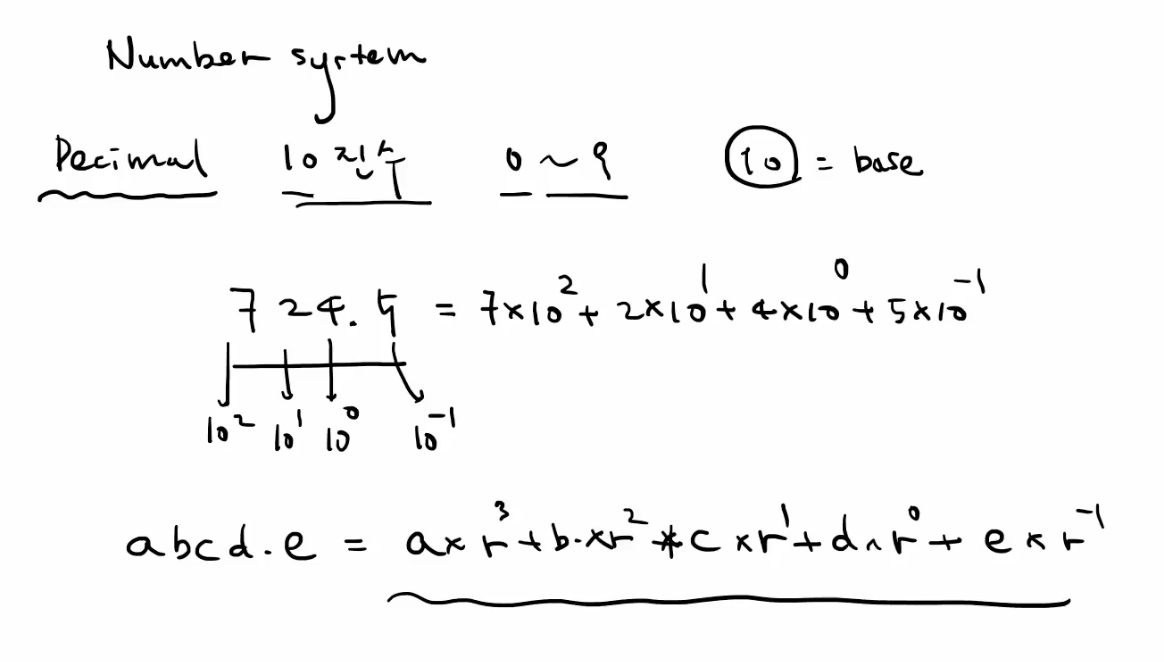 Number system
Decimal 10진수 0 ~ 9 10 = base
724.5 = 7×10² + 2×10¹ + 4×10⁰ + 5×10⁻¹
10² 10¹ 10⁰ 10⁻¹
abcd.e = a×r³ + b·×r² + c×r¹ + d×r⁰ + e×r⁻¹